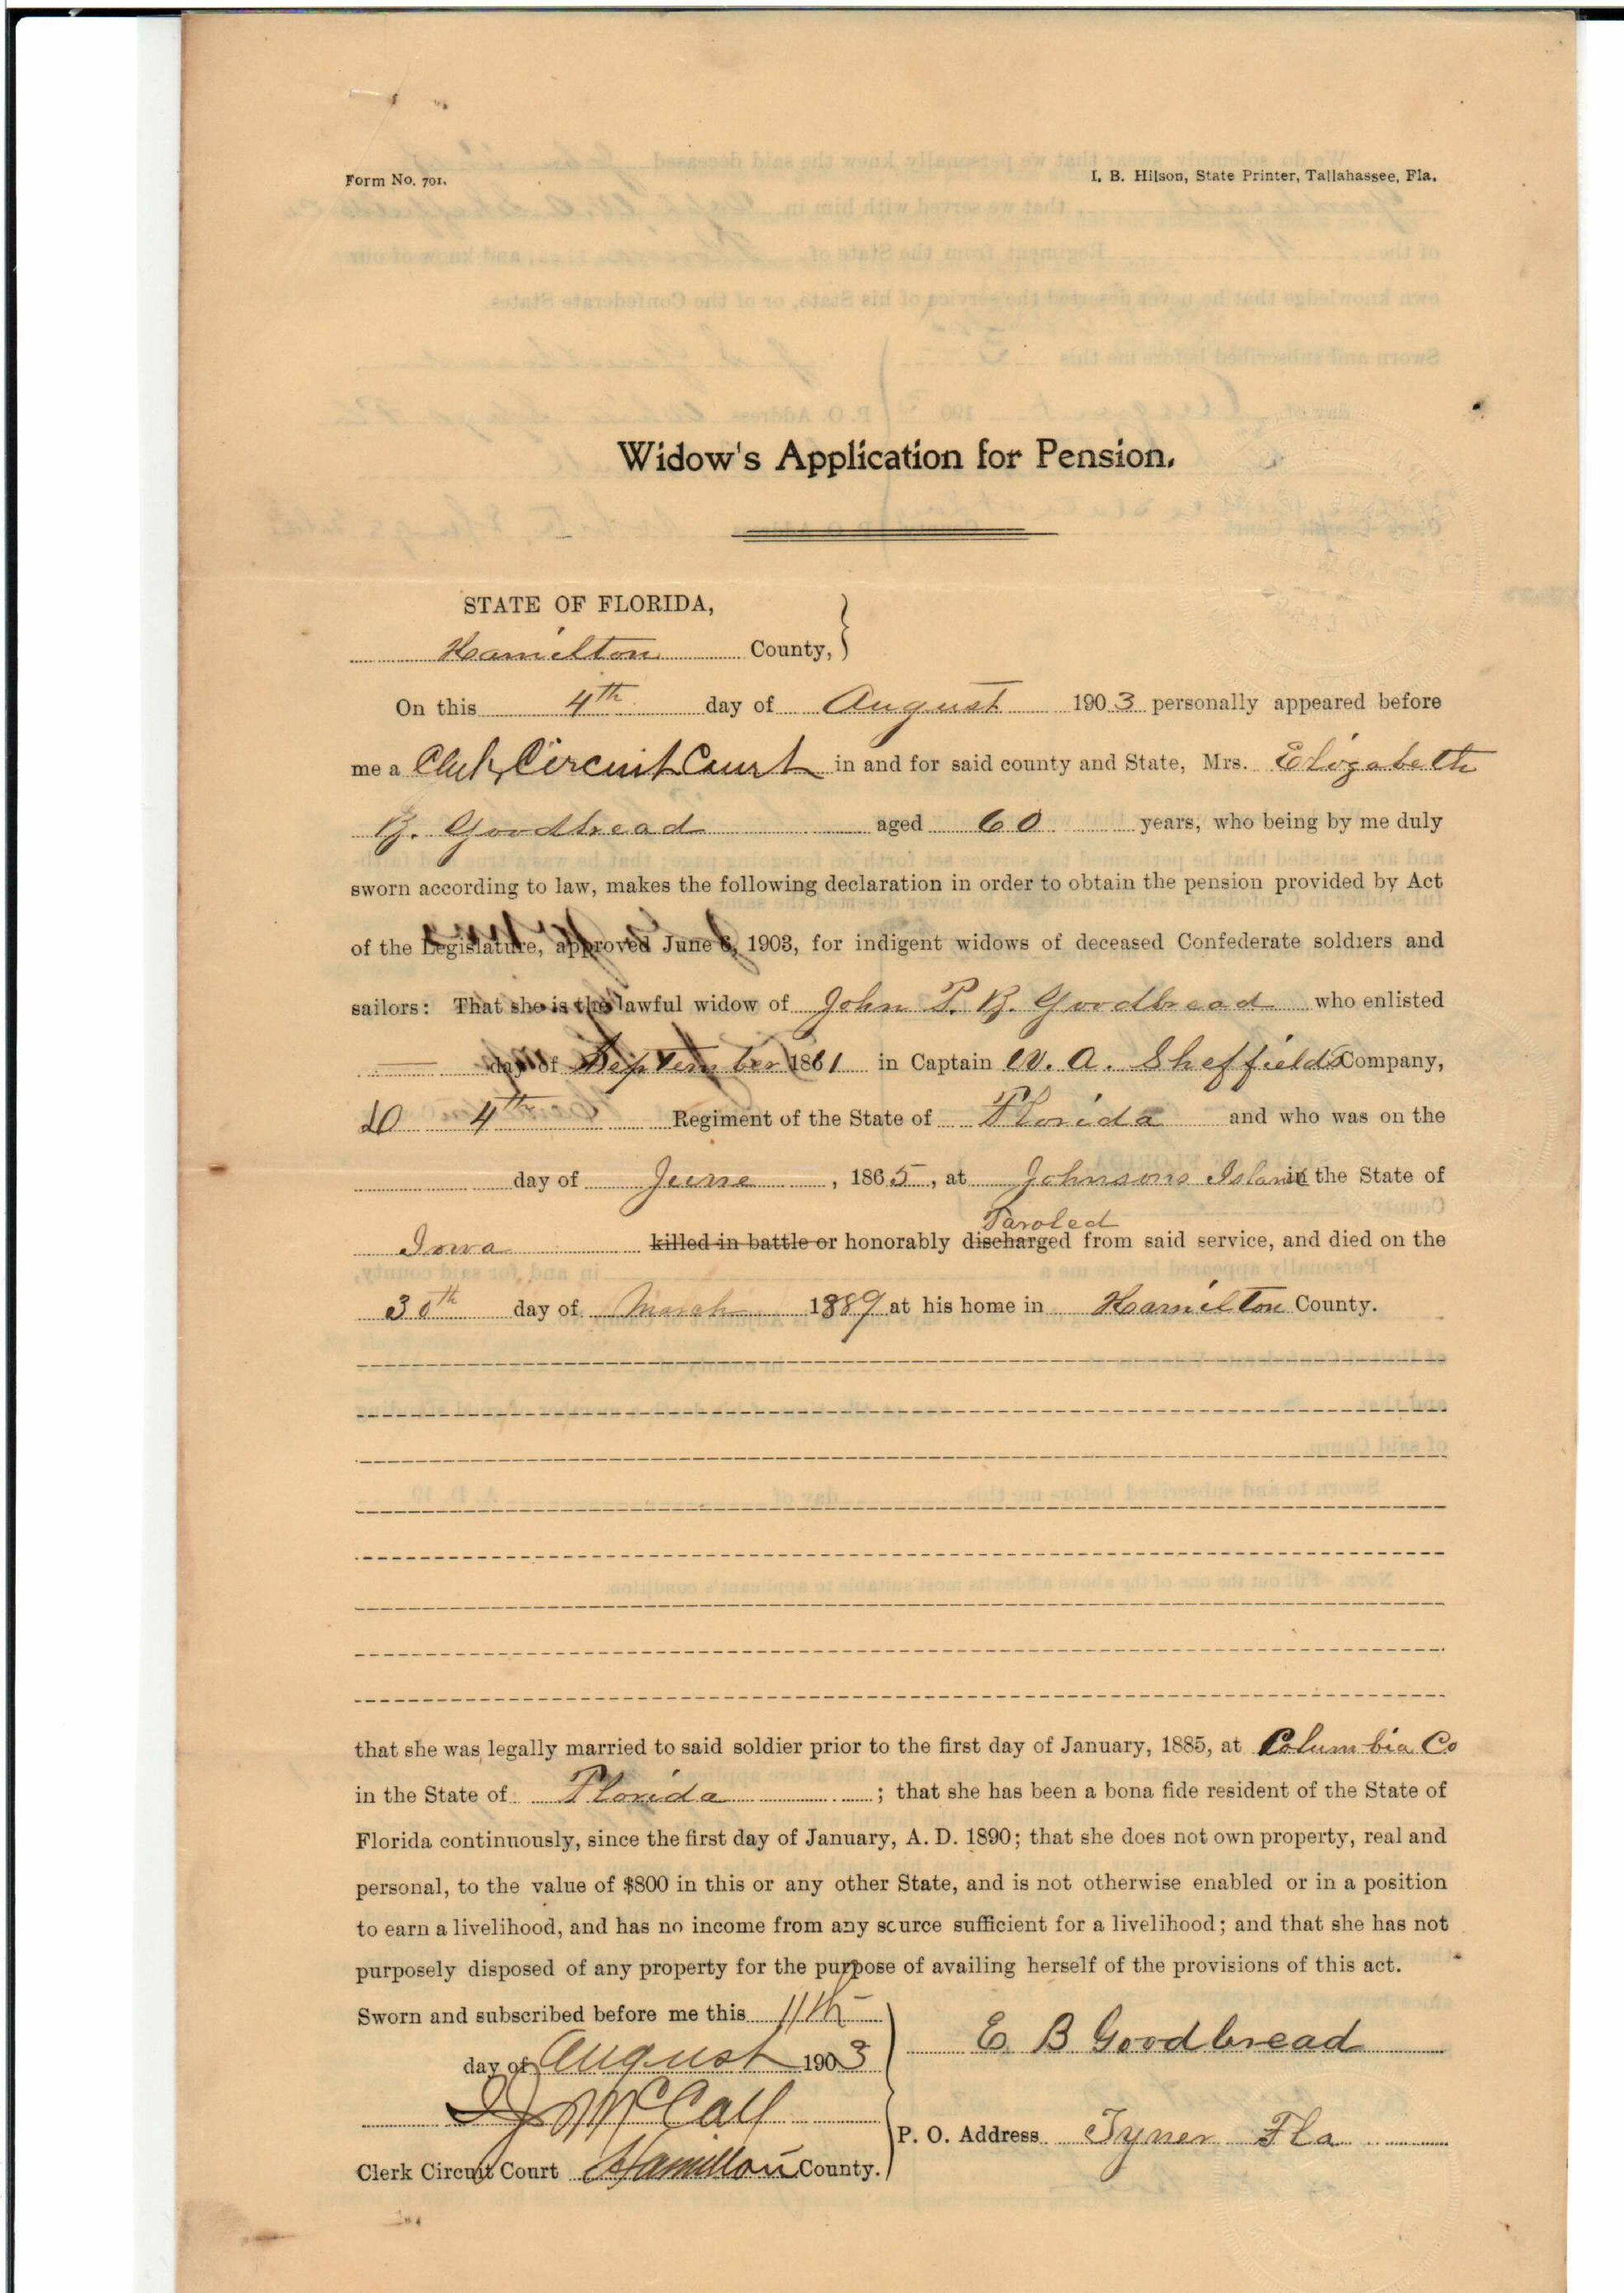 Form No. 701.
I. B. Hilson, State Printer, Tallahassee, Fla.
Widow's Application for Pension.
STATE OF FLORIDA,
Hamilton County,
On this 4th day of August 1903 personally appeared before
me a Clerk Circuit Court in and for said county and State, Mrs. Elizabeth
B. Goodbread aged 60 years, who being by me duly
sworn according to law, makes the following declaration in order to obtain the pension provided by Act
of the Legislature, approved June 8, 1903, for indigent widows of deceased Confederate soldiers and
sailors: That she is the lawful widow of John P. B. Goodbread who enlisted
— day of September 1861 in Captain W. A. Sheffields Company,
4th Regiment of the State of Florida and who was on the
day of June, 1865, at Johnsons Island in the State of
Paroled
Iowa killed in battle or honorably discharged from said service, and died on the
30th day of March 1889 at his home in Hamilton County.
that she was legally married to said soldier prior to the first day of January, 1885, at Columbia Co
in the State of Florida; that she has been a bona fide resident of the State of
Florida continuously, since the first day of January, A. D. 1890; that she does not own property, real and
personal, to the value of $800 in this or any other State, and is not otherwise enabled or in a position
to earn a livelihood, and has no income from any source sufficient for a livelihood; and that she has not
purposely disposed of any property for the purpose of availing herself of the provisions of this act.
Sworn and subscribed before me this 11th
day of August 1903
E B Goodbread
McCall
P. O. Address Tyner Fla
Clerk Circuit Court Hamilton County.